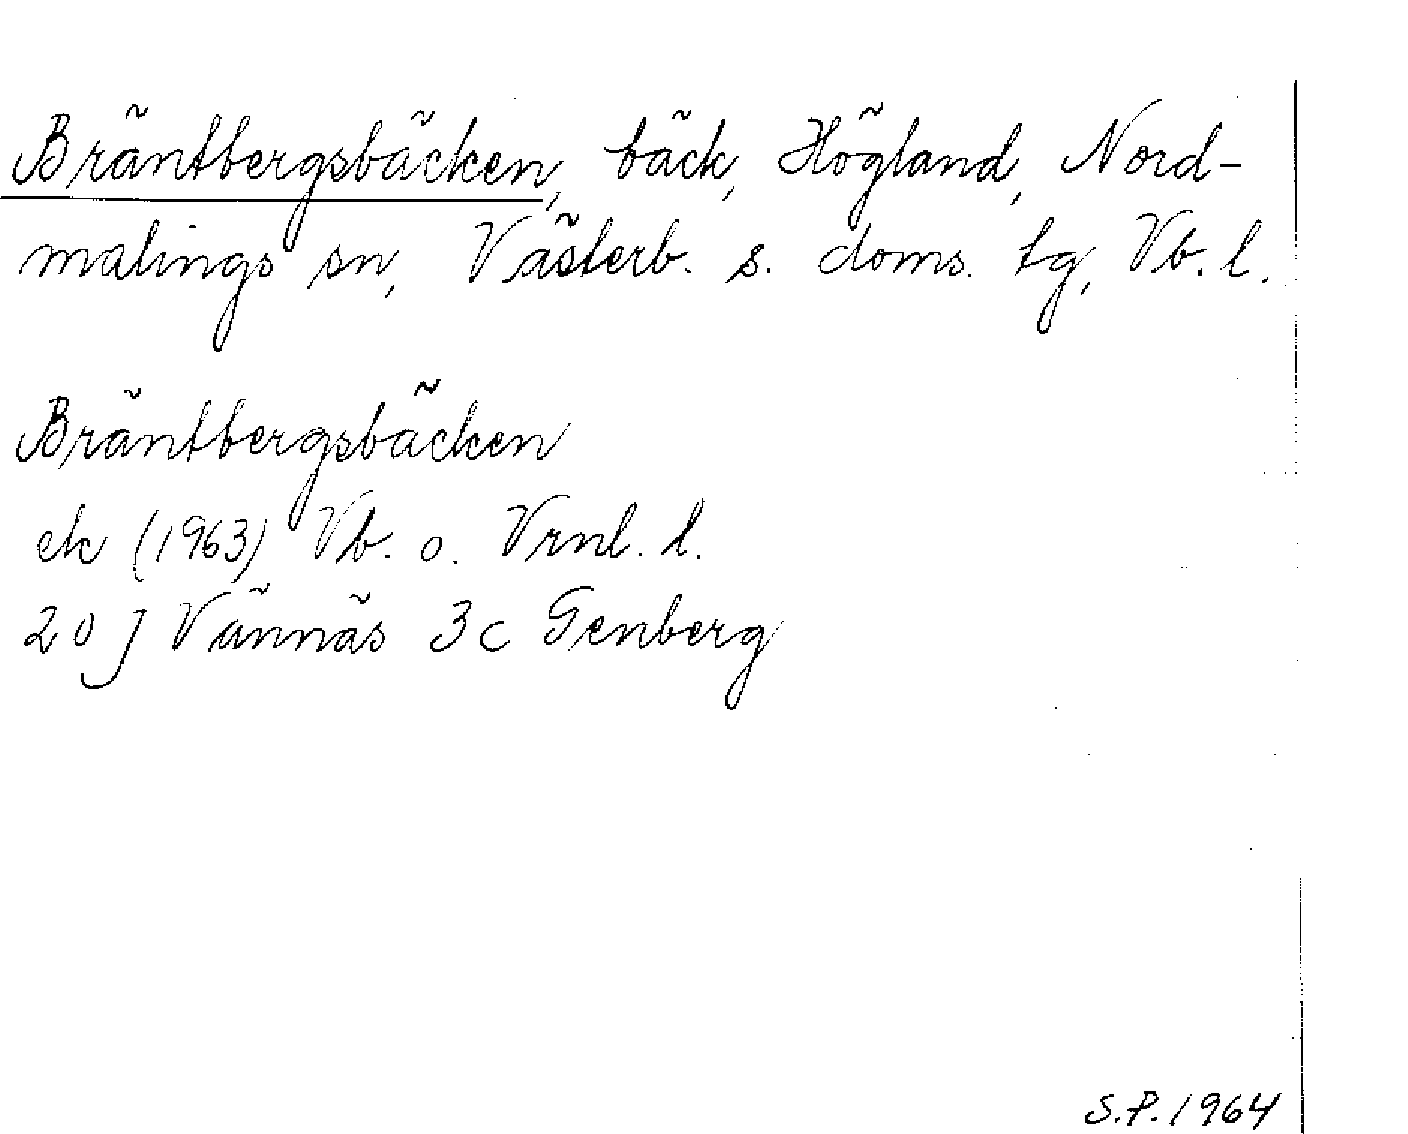 Bräntbergsbäcken, bäck, Högland, Nord-
malings sn, Västerb. s. doms. tg, Vb. l.
Bräntbergsbäcken
ek (1963) Vb. o. Vrnl. l.
20 J Vännäs 3c Genberg
S.P. 1964